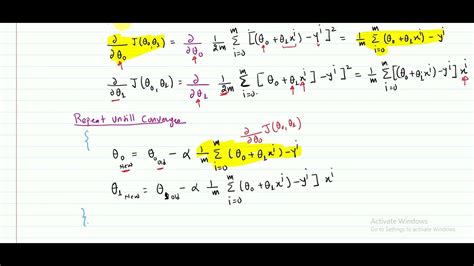 ∂/∂θ₀ J(θ₀,θ₁) = ∂/∂θ₀ 1/2m Σ_{i=0}^{m} [(θ₀ + θ₁xⁱ) − yⁱ]² = 1/m Σ_{i=0}^{m} (θ₀ + θ₁xⁱ) − yⁱ
∂/∂θ₁ J(θ₀,θ₁) = ∂/∂θ₁ 1/2m Σ_{i=0}^{m} [θ₀ + θ₁xⁱ) − yⁱ]² = 1/m Σ_{i=0}^{m} [(θ₀ + θ₁xⁱ) − yⁱ] xⁱ
Repeat untill Converges
{
∂/∂θ₀ J(θ₀,θ₁)
θ₀ New = θ₀ old − α 1/m Σ_{i=0}^{m} (θ₀ + θ₁xⁱ) − yⁱ
θ₁ New = θ₁ old − α 1/m Σ_{i=0}^{m} (θ₀ + θ₁xⁱ) − yⁱ ] xⁱ
}
Activate Windows
Go to Settings to activate Windows.